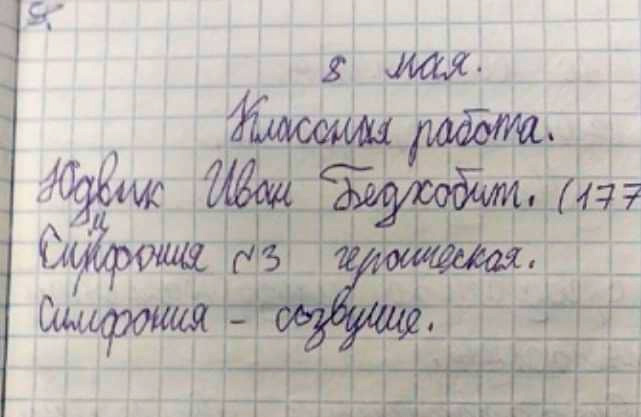 8 мая.
Классная работа.
Юдвик Иван Бедховит. (177
Симфония №3 героическая.
Симфония - созвучие.